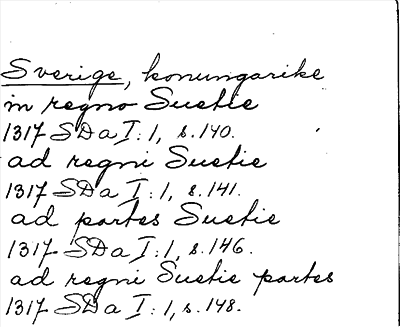 Sverige, konungarike
in regno Suetie
1317 SD a I:1, s. 140.
ad regni Suetie
1317 SD a I:1, s. 141.
ad partes Suetie
1317 SD a I:1, s. 146.
ad regni Suetie partes
1317 SD a I:1, s. 148.